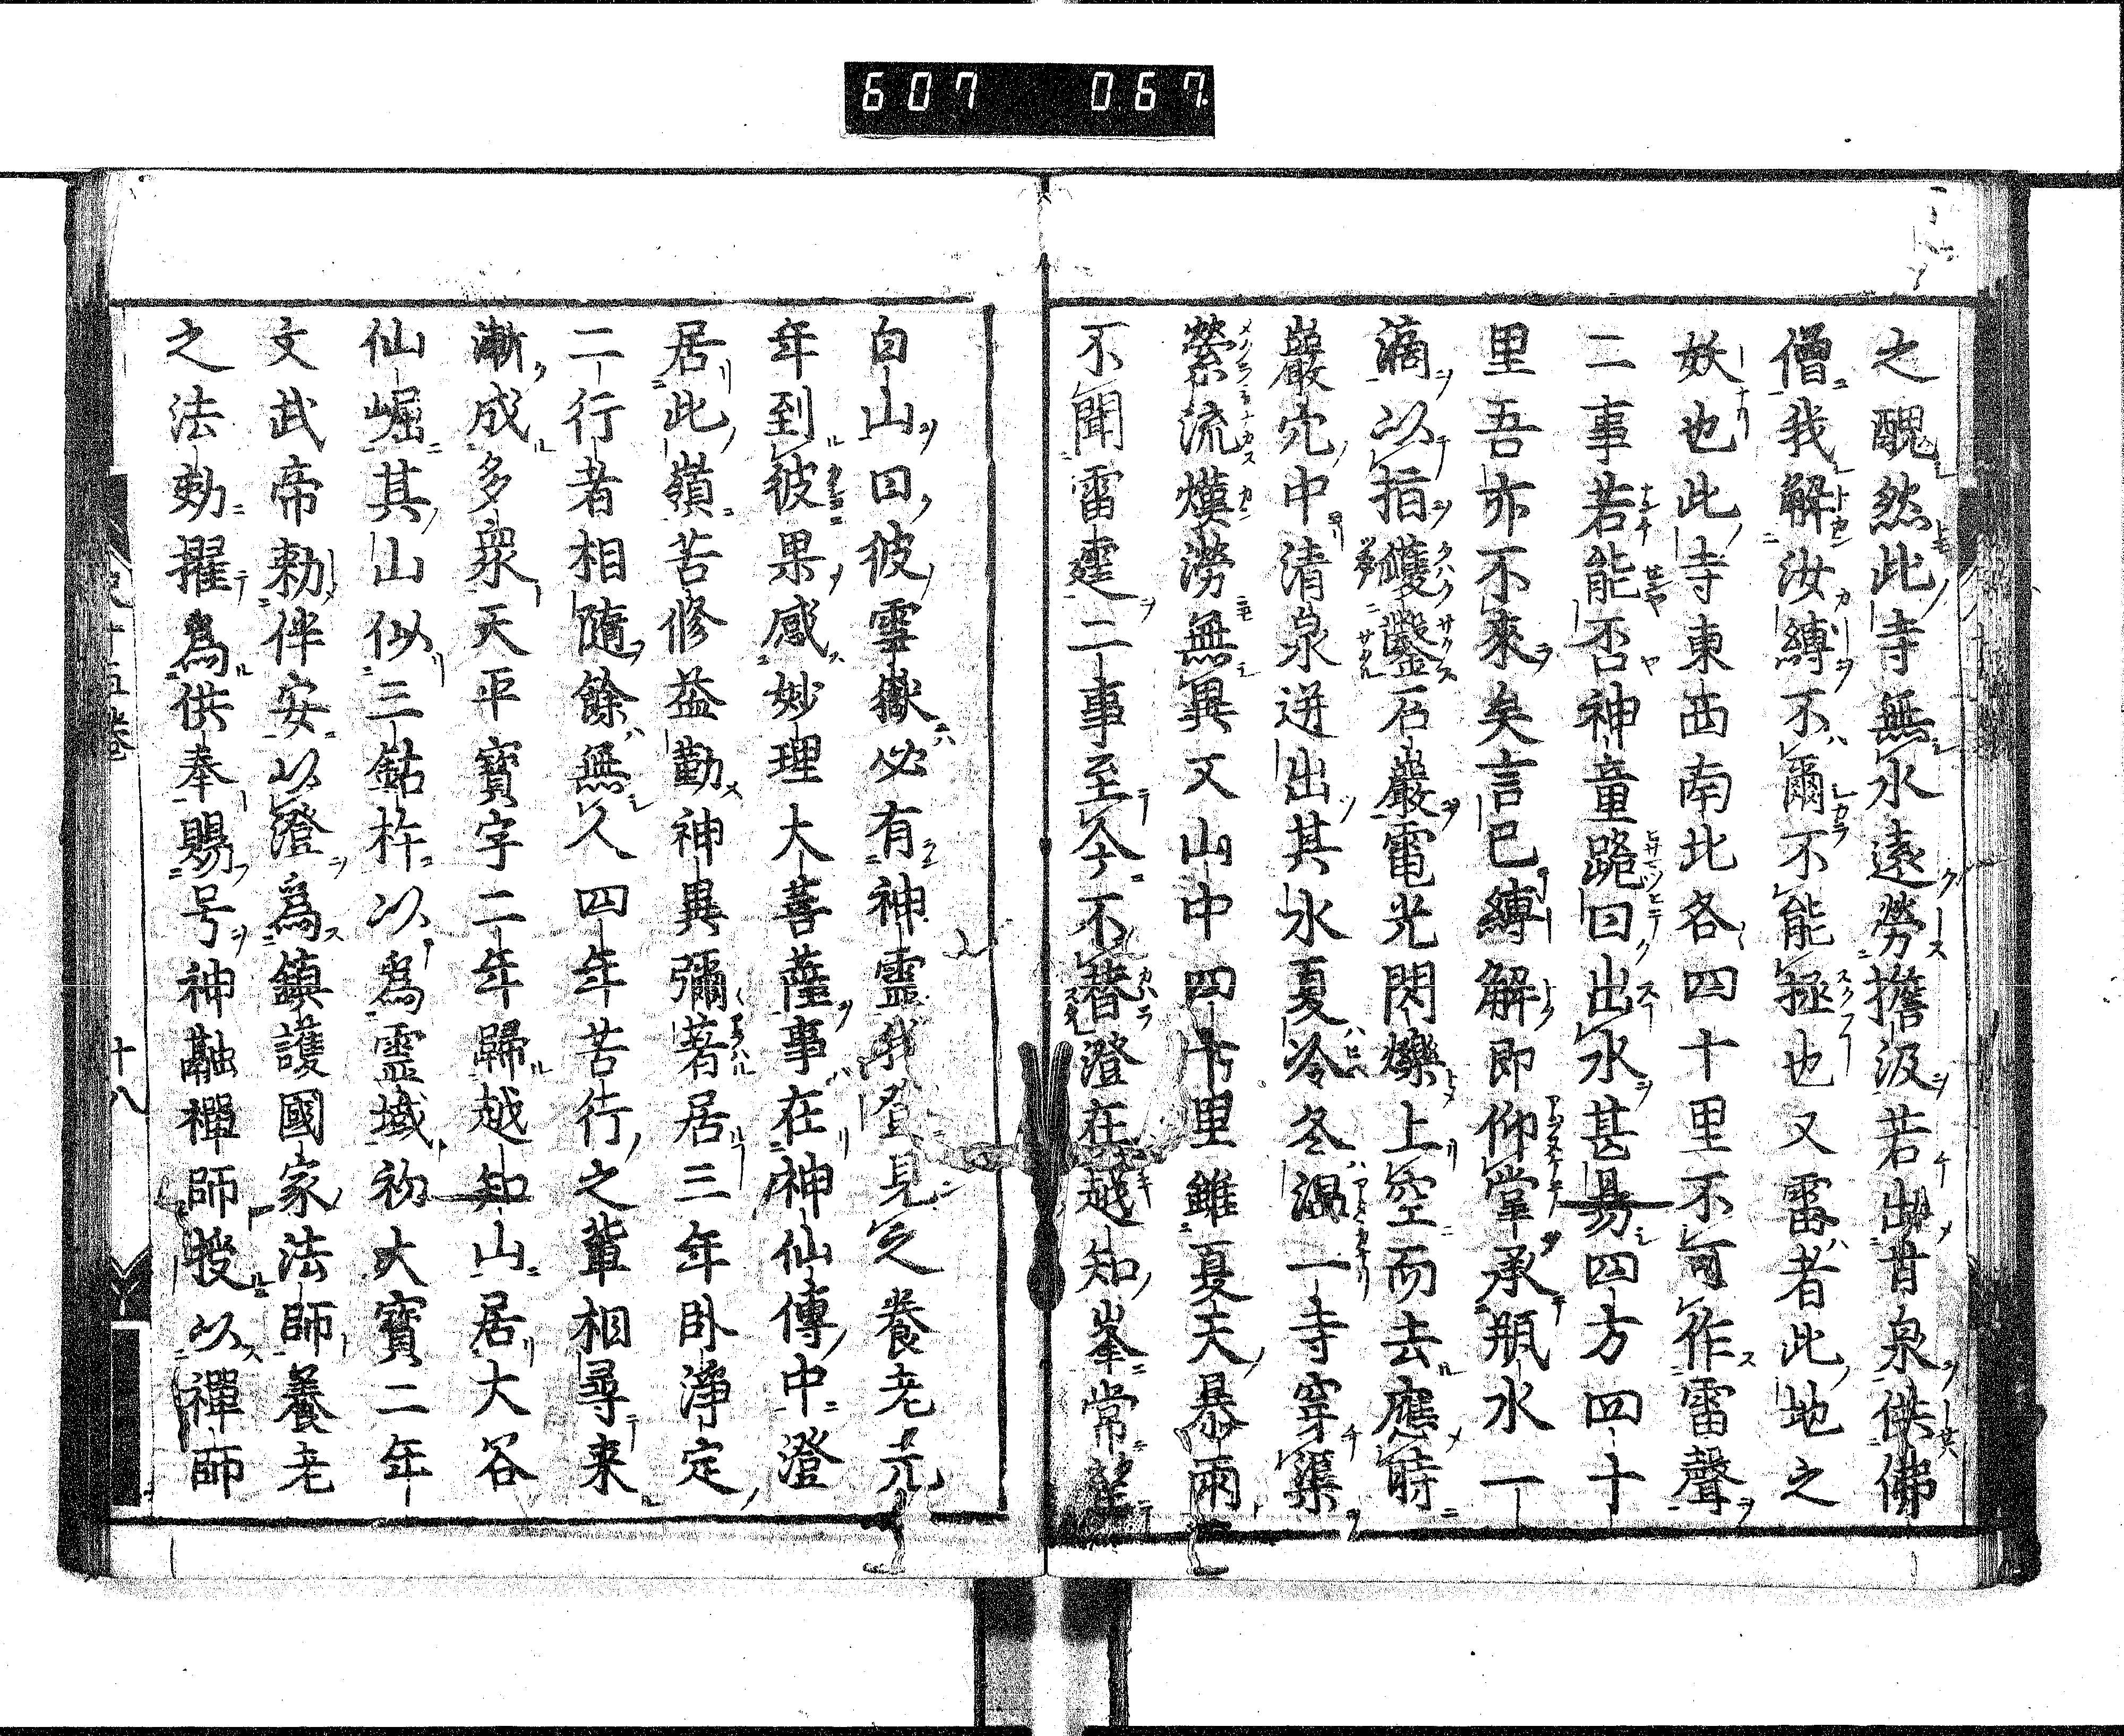 607 067
之醜然此寺無水遠勞擔汲若出甘泉供佛
僧我解汝縛不爾不能拯也又雷者此地之
妖也此寺東西南北各四十里不可作雷聲
二事若能否神童跪曰出水甚易四方四十
里吾亦不來矣言已縛解即仰掌承瓶水一
滴以指㩴鑿石巖電光閃爍上空而去應時
巖穴中清泉迸出其水夏冷冬温一寺穿渠
縈流熯澇無異又山中四十里雖夏天暴雨
不聞雷霆二事至今不替澄在越知峯常望
白山曰彼雪嶽必有神靈我登見之養老元
年到彼果感妙理大菩薩事在神仙傳中澄
居此嶺苦修益勤神異彌著居三年卧淨定
二行者相隨餘無人四年苦行之輩相尋来
漸成多衆天平寶字二年歸越知山居大谷
仙崛其山似三鈷杵以爲靈域初大寶二年
文武帝勅伴安以澄爲鎮護國家法師養老
之法効擢爲供奉賜号神融禪師授以禪師
十八